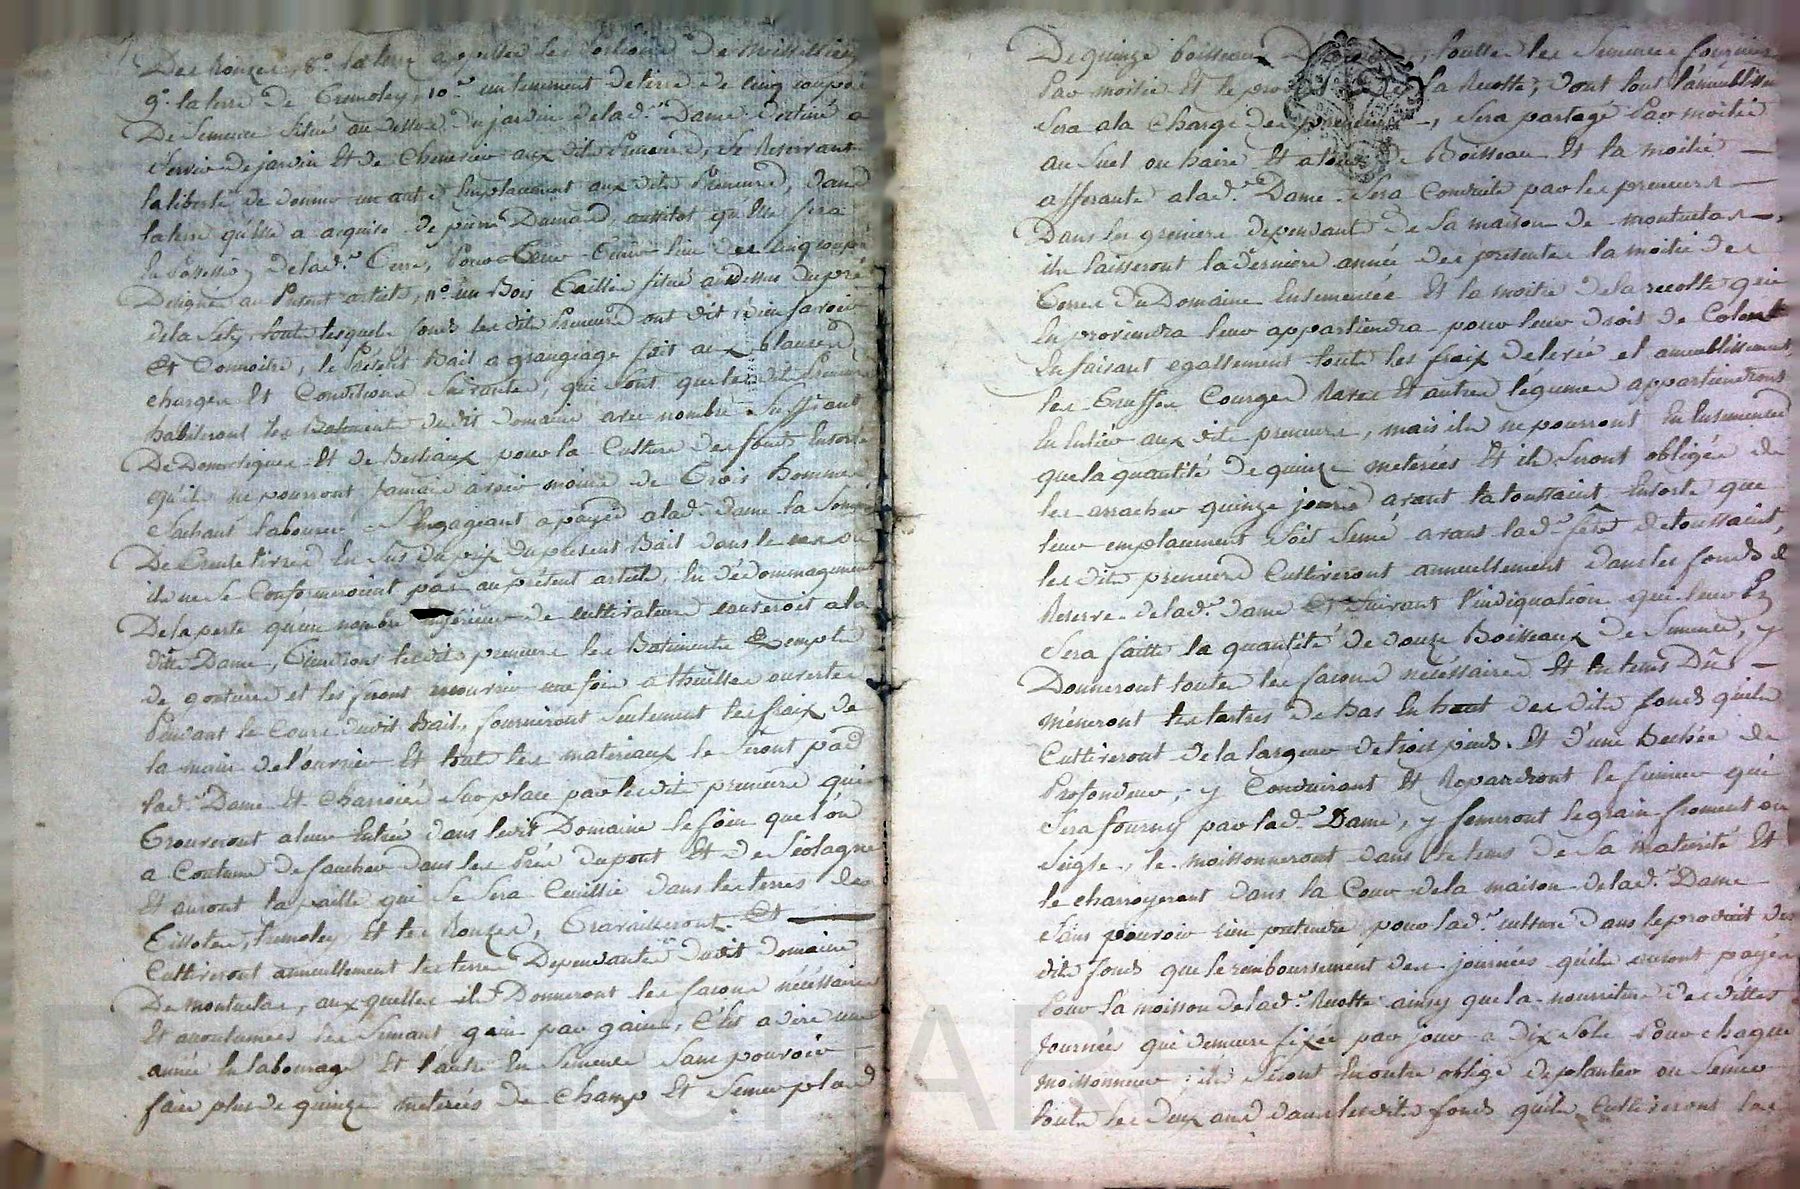 Des Rouzes, 8.° la terre appellée les
9.° la terre de Tremoley, 10.° un tenement de terre de cinq coupées
De Semence situé au dessus du jardin de lad.e Dame destiné a
Servir de jardin et de cheneviere aux dits Preneurs, se Reservant
la liberté de donner un autre Emplacement aux dits Preneurs, dans
la terre qu'elle a acquise de pierre Damas, aussitot qu'elle sera
En Possession de lad.e Terre, Pour Tenir lieu des cinq coupées
Designé au Present article, 11.° un Bois Taillis situé au dessus du pré
de la toute lesquels fonds lesdits Preneurs ont dit bien savoir
et Connoitre, le Présent Bail a grangeage fait aux clauses
charges Et Conditions Suivantes, qui sont que lesdits Preneurs
habiteront les Batiments dudit domaine avec nombre Suffisant
De Domestiques Et de Bestiaux pour la Culture des fonds Ensorte
qu'ils ne pourront jamais avoir moins de Trois hommes
Sachant labourer S'Engageant a payer a lad.e Dame la Somme
De Trente livres En Sus du prix du present Bail dans le cas ou
ils ne Se Conformeroient pas au présent article, En dédommagement
De la perte qu'un nombre inférieur de cultivateurs causeroit a la
ditte Dame, Tiendront lesdits preneurs les Batiments Exempts
de goutieres et les feront une fois a thuilles ouvertes
Pendant le Cours dudit Bail, fourniront Seulement les fraix de
la main de l'ouvrier Et tout les materiaux le Seront par
lad.e Dame Et Charroiés Sur place par lesdits preneurs qui
Trouveront a leur Entrée dans ledit Domaine le foin que l'on
a Coutume de faucher dans les Prés du pont Et de Séolagne
Et auront la paille qui Se Sera Cuillie dans les terres des
Tillotes, tremoley Et les Rouzes, Travailleront Et
Cultiveront annuellement les terres Dependantes dudit Domaine
De Montuclas, aux quelles ils Donneront les façons nécéssaires
Et accoutumées les Semant gain par gain, C'est a dire une
année En labourage Et l'autre En Semence Sans pouvoir
faire plus de quinze meterées de Champ Et Semer plus
De quinze boisseaux toutes les Semences fournies
Par moitié Et le la Recolte, dont tout l'ameublissement
Sera a la Charge des preneurs, Sera partagé Par moitié
au Suel ou haire Et a tour de Boisseau Et la moitié
afferante a lad.e Dame Sera Conduite par les preneurs
Dans les greniers dependants de Sa maison de montuclas,
ils laisseront la derniere année des presentes la moitié des
Terres du Domaine Ensemencée Et la moitié de la recolte qui
En proviendra leur appartiendra pour leur droit de Colonat
En faisant egallement tout les fraix de levée et ameublissement
les Truffes Courges Raves Et autres légumes appartiendront
En Entier aux dits preneurs, mais ils ne pourront En Ensemencer
que la quantité De quinze meterées Et ils Seront obligés de
les arracher quinze jours avant la toussaint, Ensorte que
leur emplacement Soit Semé avant lad.e fête de toussaint,
lesdits preneurs Cultiveront annuellement dans les fonds de
Reserve de lad.e dame Et Suivant l'indiquation qui leur En
Sera faitte la quantité de douze Boisseaux de Semence, y
Donneront toutes les façons nécéssaires Et En tems Dû
méneront les tertres de bas En haut des dits fonds qu'ils
Cultiveront de la largeur de trois pieds Et d'une Bechée de
Profondeur, y Conduiront Et Repandront le fumier qui
Sera fourny par lad.e Dame, y Semeront le grain froment ou
Seigle, le moissonneront dans le tems de Sa maturité Et
le charroyeront dans la Cour de la maison de lad.e Dame
Sans pouvoir rien pretendre pour lad.e culture dans le produit des
dits fonds que le remboursement des journées qu'ils auront payés
Pour la moisson de lad.e Recolte ainsy que la nourriture des dittes
Journées qui demeure fixée par jour a Dix Sols Pour chaque
moissonneur, ils Seront En outre obligé de planter ou Semer
toutes les deux ans dans lesdits fonds qu'ils Cultiveront les